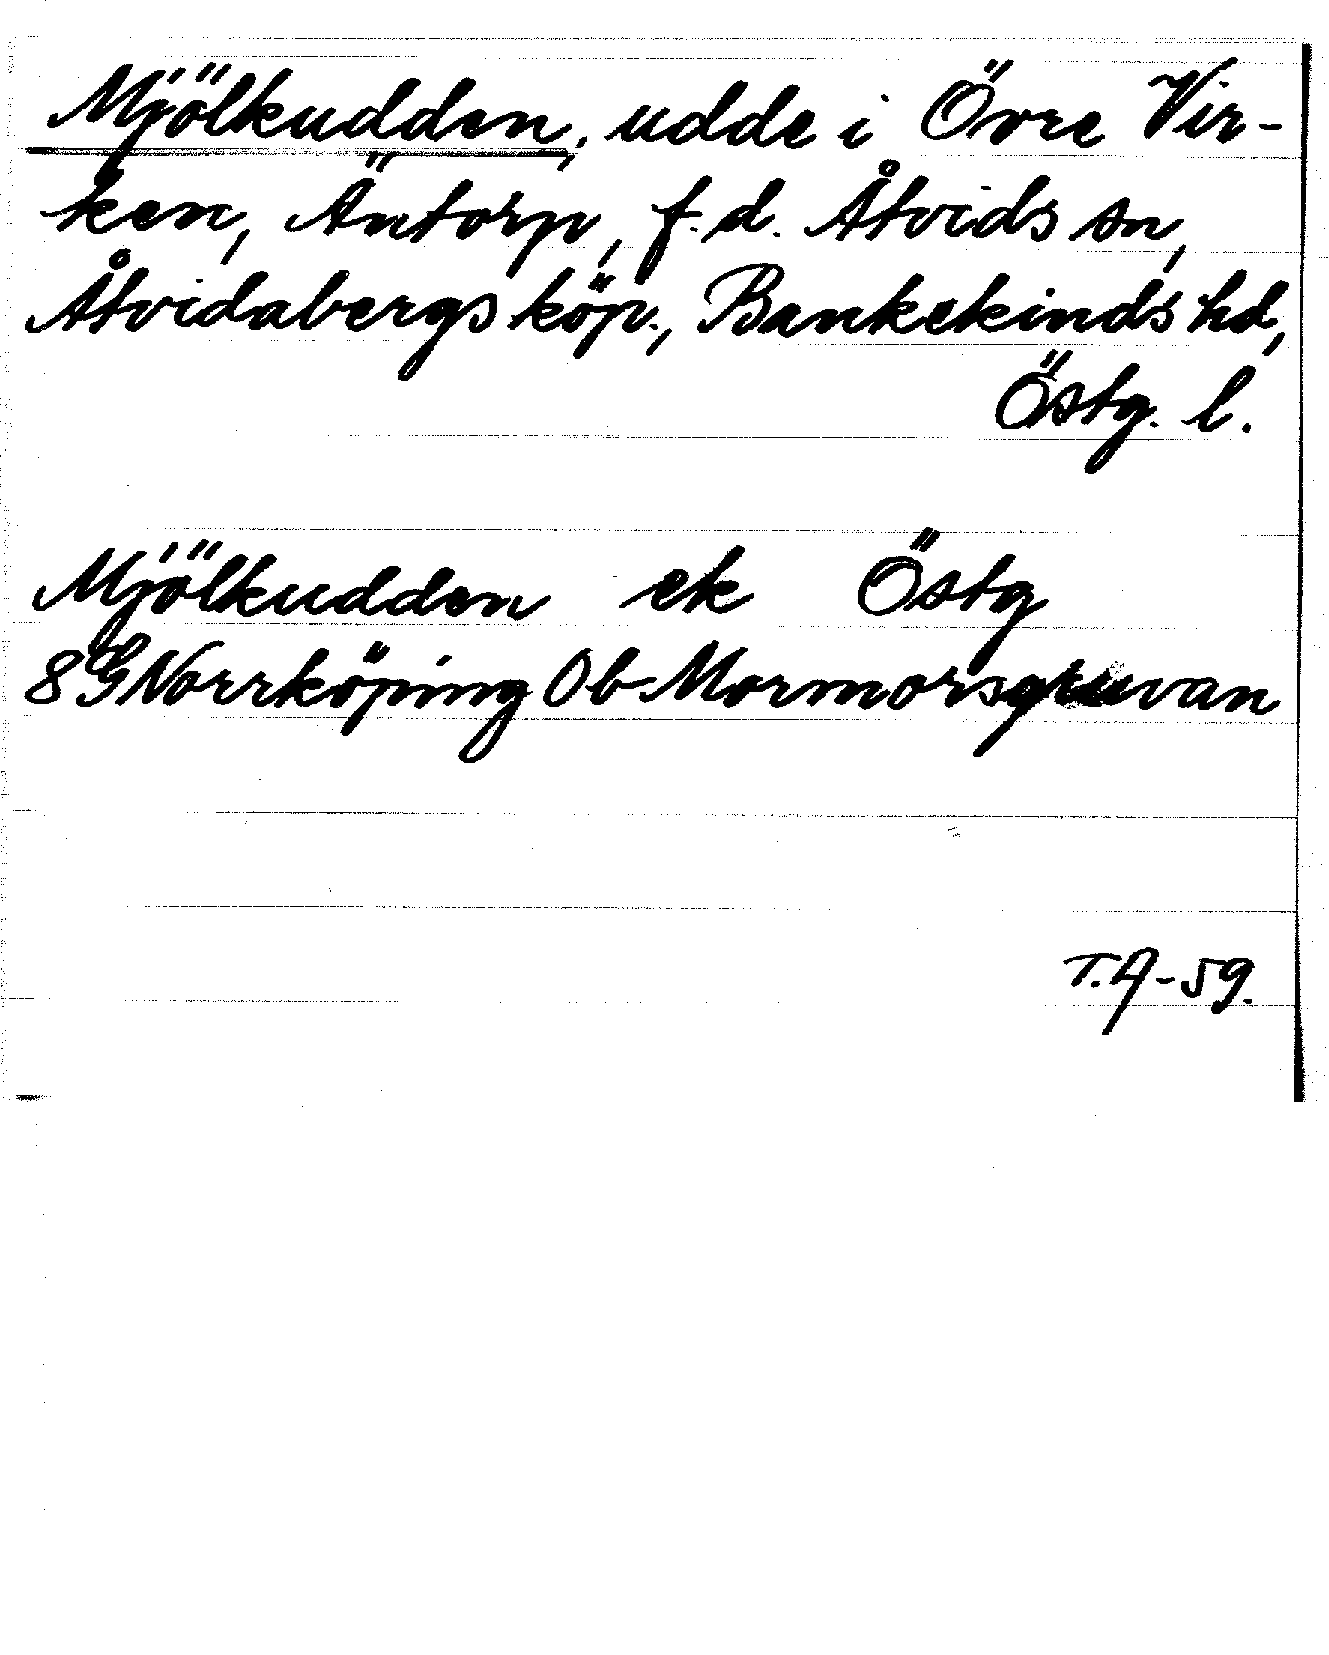 Mjölkudden, udde i Övre Vir-
ken, Äntorp, f.d. Åtvids sn,
Åtvidabergs köp., Bankekinds hd,
Östg. l.
Mjölkudden ek Östg
8G Norrköping Ob Mormorsgruvan
T.A-59.